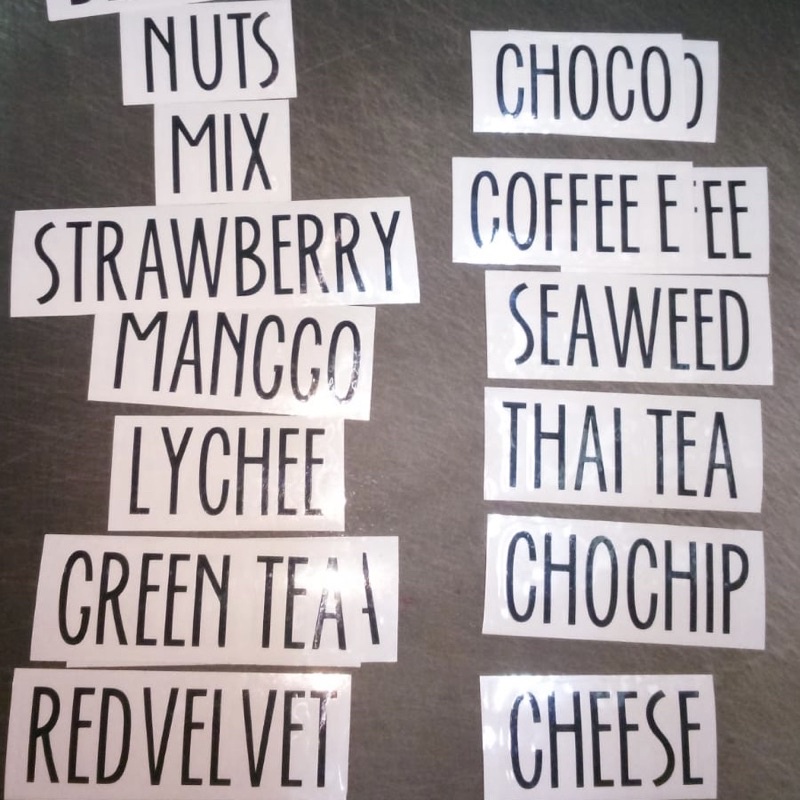 NUTS
MIX
STRAWBERRY
MANGGO
LYCHEE
GREEN TEA
REDVELVET
CHOCO
COFFEE
SEAWEED
THAI TEA
CHOCHIP
CHEESE